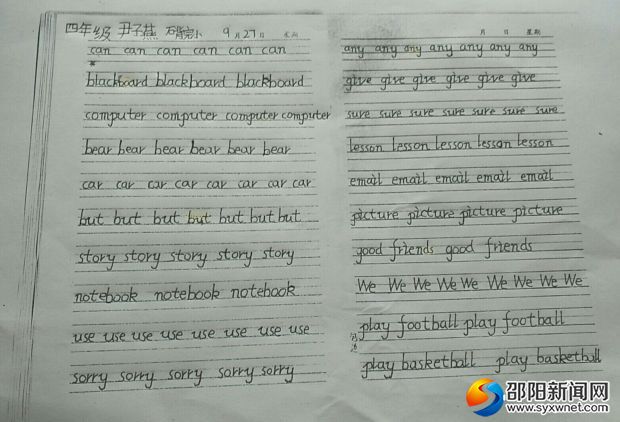 四年级 尹子燕 9月27日
can can can can can can
blackboard blackboard blackboard
computer computer computer computer
bear bear bear bear bear bear
car car car car car car car
but but but but but but but
story story story story story
notebook notebook notebook
use use use use use use use use
sorry sorry sorry sorry sorry
月 日 星期
any any any any any any any
give give give give give give
sure sure sure sure sure sure sure
lesson lesson lesson lesson lesson
email email email email email
picture picture picture picture
good friends good friends
We We We We We We We We We
play football play football
play basketball play basketball
邵阳新闻网
www.syxwnet.com